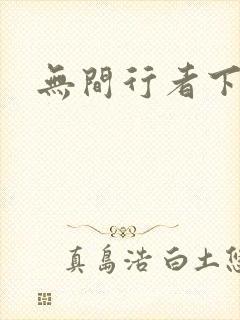 無間行者下
真島浩 白土悠